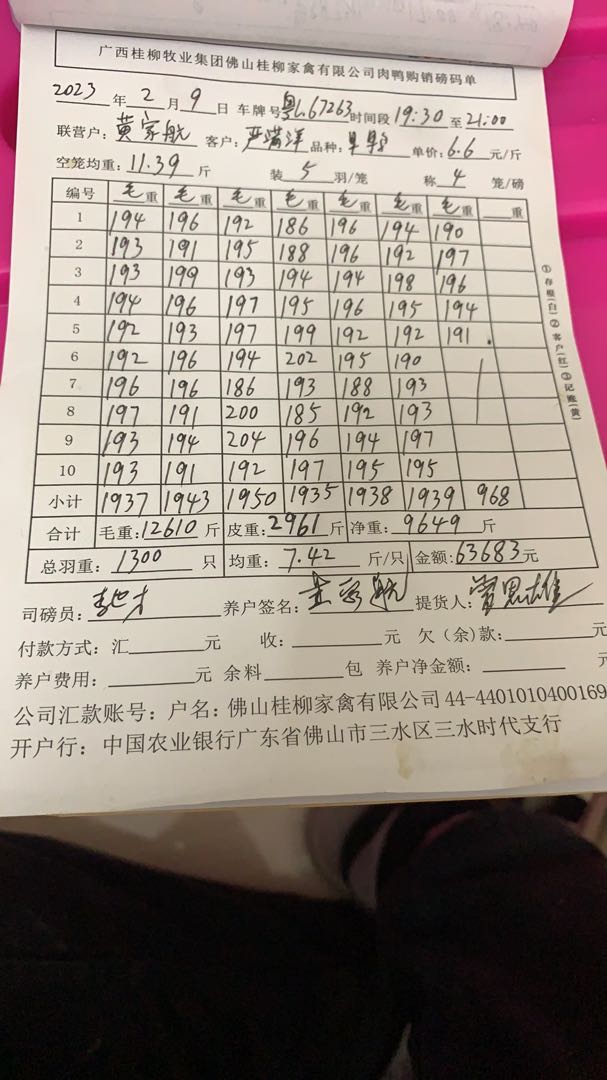 广西桂柳牧业集团佛山桂柳家禽有限公司肉鸭购销磅码单
2023 年 2 月 9 日 车牌号 粤L67263 时间段 19:30 至 21:00
联营户: 黄家航 客户: 严满洋 品种: 单价: 6.6 元/斤
空笼均重: 11.39 斤 装 5 羽/笼 称 4 笼/磅
编号 毛重 毛重 毛重 毛重 毛重 毛重 毛重 重
1 194 196 192 186 196 194 190
2 193 191 195 188 196 192 197
3 193 199 193 194 194 198 196
4 194 196 197 195 196 195 194
5 192 193 197 199 192 192 191
6 192 196 194 202 195 190
7 196 196 186 193 188 193
8 197 191 200 185 192 193
9 193 194 204 196 194 197
10 193 191 192 197 195 195
小计 1937 1943 1950 1935 1938 1939 968
合计 毛重: 12610 斤 皮重: 2961 斤 净重: 9649 斤
总羽重: 1300 只 均重: 7.42 斤/只 金额: 63683 元
司磅员: 养户签名: 黄家航 提货人:
付款方式: 汇 元 收: 元 欠(余)款:
养户费用: 元 余料 包 养户净金额: 元
公司汇款账号: 户名: 佛山桂柳家禽有限公司 44-4401010400169
开户行: 中国农业银行广东省佛山市三水区三水时代支行
①存根(白)②客户(红)③记账(黄)